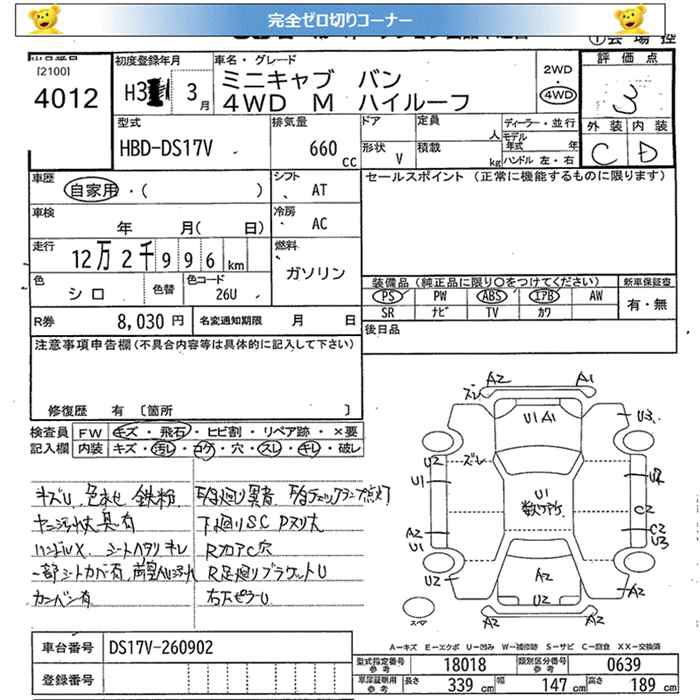 完全ゼロ切りコーナー
出品番号
[2100]
4012
初度登録年月
H31 3月
車名・グレード
ミニキャブ バン
4WD M ハイルーフ
2WD
・
4WD
評価点
外装 内装
C D
型式
HBD-DS17V
排気量
660 cc
ドア
形状 V
定員 人
積載 kg
ディーラー・並行
モデル年式 年
ハンドル 左・右
車歴
自家用・( )
シフト
AT
セールスポイント (正常に機能するものに限ります)
車検
年 月( 日)
冷房
AC
走行
12万2千996km
燃料
ガソリン
色
シロ
色替
色コード
26U
装備品 (純正品に限り○をつけてください)
新車保証書
PS PW ABS エアB AW
有・無
SR ナビ TV カワ
R券 8,030円
名変通知期限 月 日
後日品
注意事項申告欄(不具合内容等は具体的に記入して下さい)
修復歴 有 [箇所 ]
検査員 FW キズ・飛石・ヒビ割・リペア跡・×要
記入欄 内装 キズ・汚レ・コゲ・穴・スレ・キレ・破レ
キズU 色あせ 鉄粉
下廻りSC
ハンドルX シートヘタリ キレ
RフロアC穴
一部シートカバー有
R足廻りブラケットU
A2 A1
ズレ
U1 A1
U3
U2 ズレ
U1
U1
C2
A2
U1
C2
U3
A2
U2
U2
A2
A2 A2
スペア
A-キズ E-エクボ U-凹み W-補修跡 S-サビ C-腐食 XX-交換済
車台番号 DS17V-260902
登録番号
型式指定番号 参考 18018
類別区分番号 参考 0639
車庫証明用 参考 長さ 339 cm 幅 147 cm 高さ 189 cm